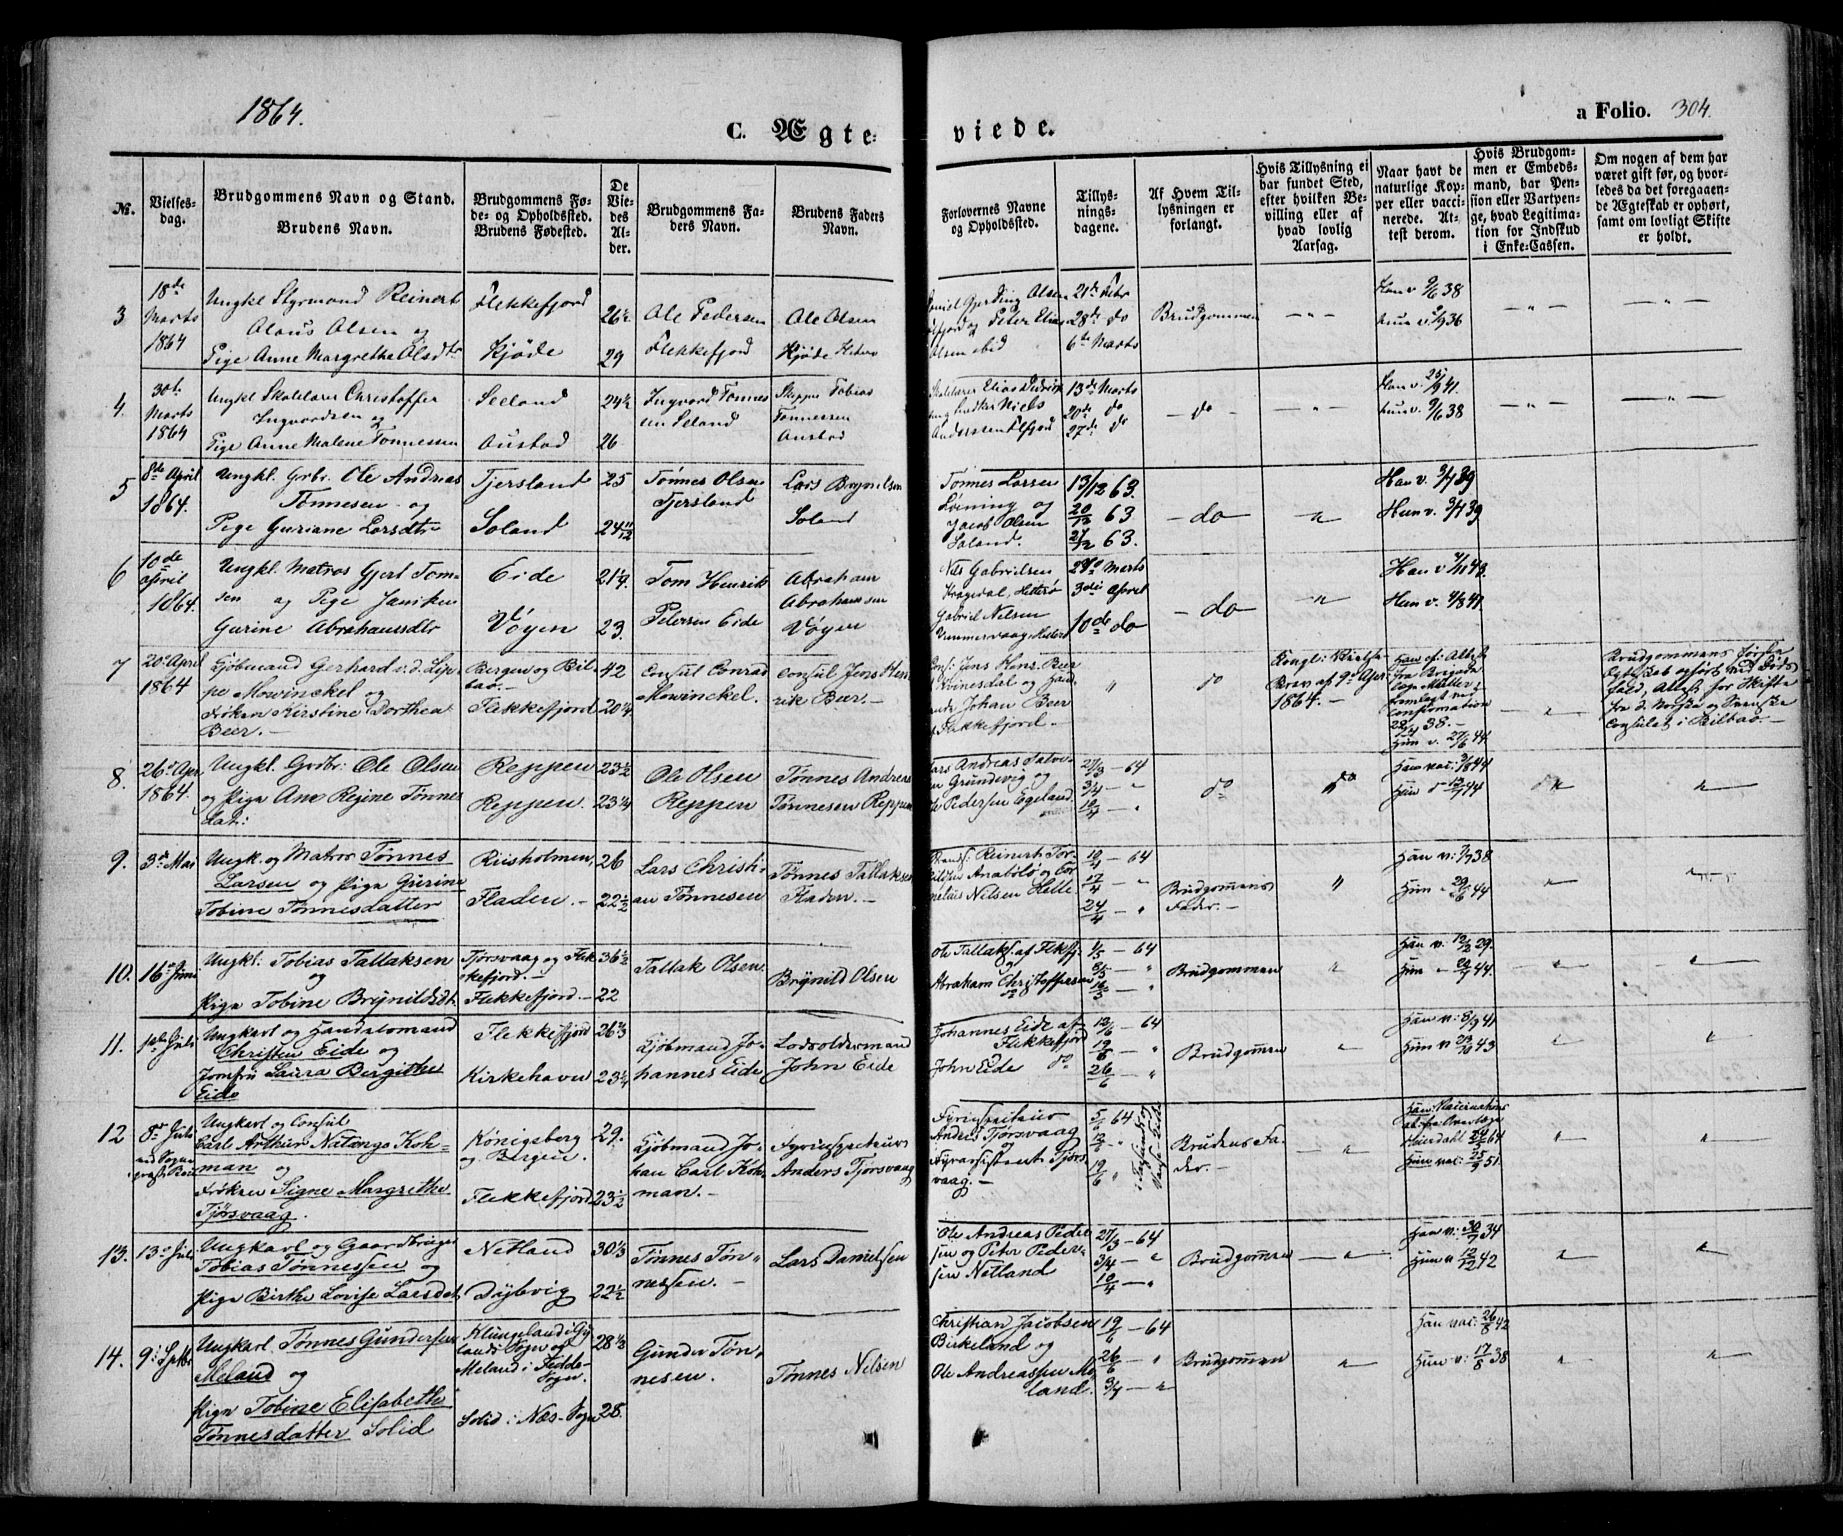 1864.
C. Ægte-
viede.
a Folio. 304.
№.
Vielses-
dag.
Brudgommens Navn og Stand.
Brudens Navn.
Brudgommens Fø-
de- og Opholdssted.
Brudens Fødested.
De
Vie-
des
Al-
der.
Brudgommens Fa-
ders Navn.
Brudens Faders
Navn.
Forlovernes Navne
og Opholdssted.
Tillys-
nings-
dagene.
Af Hvem Til-
lysningen er
forlangt.
Hvis Tillysning ei
har fundet Sted,
efter hvilken Be-
villing eller af
hvad lovlig
Aarsag.
Naar havt de
naturlige Kop-
per eller vacci-
nerede. At-
test derom.
Hvis Brudgom-
men er Embeds-
mand, har Pen-
sion eller Vartpen-
ge, hvad Legitima-
tion for Indskud
i Enke-Cassen.
Om nogen af dem har
været gift før, og hvor-
ledes da det foregaaen-
de Ægteskab er ophørt,
samt om lovligt Skifte
er holdt.
3
18de
Marts
1864
Ungkl Styrmand Reinert
Olaus Olsen og
Pige Anne Margrethe Olsdtr
Flekkefjord
Kjøde
26½
29
Ole Pedersen
Flekkefjord
Ole Olsen
Kjøde
Gjerding Olsen
og Peter Elias
Olsen ibid
21de Febr
28de do
6te Marts
Brudgommen
- " -
Han v 9/6 38
hun v 36
- " -
- " -
4.
30te
Marts
1864
Ungkl Skolelærer Christoffer
Ingvordsen og
Pige Anne Malene Tønnesen
Seeland
Austad
24½
26
Ingvord Tønnes
sen Seland
Skipper Tobias
Tønnessen
Austad
Skolelærer Elias
Niels
Anderssen
13de Marts
20de do
27de do
- do
"
Han v. 25/9 41.
hun v. 9/6 38
- " -
- " -
5
8de April
1864.
Ungkl. Grbr. Ole Andreas
Tønnesen og
Pige Guriane Larsdtr
Tjersland
Soland
25
24 11/12
Tønnes Olsen
Tjersland
Lars Brynilsen
Soland
Tønnes Larsen
Løining og
Jacob Olsen
Soland.
13/12 63.
20/12 63
27/12 63.
- do
"
Han v. 3/7 39
Hun v. 3/7 39
6
10de
April
1864.
Ungkl. Matros Gjert Tom-
sen og Pige Janiken
Gurine Abrahamsdtr
Eide
Vøyen
21 1/9.
23.
Tom Henrik
Petersen Eide
Abraham
Abrahamsen
Vøyen
Nils Gabrielsen
Hitterø
Gabriel Nelsen
28de Marts
3die April
10de do
- do
"
Han v 4/11 43.
Hun v. 4/8 41.
7
20. April
1864
Kjøbmand Gerhard v.d. Lip-
pe Mowinckel og
Frøken Kirstine Dorthea
Beer. -
Bergen og Bil-
bao. -
Flekkefjord
42
20¼
Consul Conrad
Mowinckel.
Consul Jens Hen-
rik Beer. -
Consl. Jens Hans. Beer
Qvinesdal og
Johan Beer
Flekkefjord. -
"
do
Kongl:
Brev af 9de Apr
1864. -
Han ef: Attest
fra
confirmation
38. -
Hun v. 27/6 44.
"
Brudgommens første
Ægteskab ophørt ved Døds-
fald, Attest for Skifte
fra d. Norske og Svenske
Consulat i Bilbao. -
8
26. Apr
1864.
Ungkl. Grdbr: Ole Olsen
og Pige Ane Regine Tønnes
dat:
Reppen
Reppen.
23½
23¼
Ole Olsen
Reppen
Tønnes Andreas
Tønnesen Reppen
Lars Andreas
Grundevig og
Ole Pedersen Egeland.
27/3 - 64
3/4 - "
10/4 - "
do
do
Han vac: 44
Hun d 44
"
"
9.
3de Mai
Ungk. og Matros Tønnes
Larsen og Pige Gurine
Tobine Tønnesdatter
Riisholmen,
Fladen. -
26
22½
Lars Christi-
an Tønnesen
Tønnes Tallaksen
Fladen. -
Reinert Tor-
Anabeløe og Cor-
nelius Nilsen Hette
10/4 - 64
17/4 - "
24/4 - "
Brudgomans
Fader. -
"
Han v: 7/7 38
Hun " 29/6 44
"
"
10.
16. Juni
Ungkl: Tobias Tallaksen
og
Pige Tobine Brynildsdt.
Tjørsvaag og Flek
kefjord. -
Flekkefjord. -
36½
22
Tallak Olsen
Brynild Olsen
Ole Tallaks. af Flekkfj.
og
Abraham Christoffersen
1/5 - 64
8/5 - "
16/5 - "
Brudgomman
"
Han v: 29.
Hun " 44.
"
"
11.
1ste Juli
Ungkarl og Handelsmand
Christen Eide og
Jomfru Laura Bergithe
Eide
Flekkefjord
Kirkehavn
26⅔
23¼
Kjøbmand Jo-
hannes Eide
Lodsoldermand
John Eide
Johannes Eide af
Flekkefjord
John Eide do
12/6 - 64
19/6 - "
26/6 - "
Brudgoman
"
Han v: 8/9 41
Hun v 43
"
"
12
8de Juli
Ungkarl og Consul
Carl Arthur Nitango Koh-
man og
Frøken Signe Margrethe
Tjørsvaag.
Königsberg
og Bergen.
Flekkefjord
29.
23½
Kjøbmand Jo-
han Carl Koh-
man. -
Fyrinspecteur
Anders Tjørsvaag
Fyrinspecteur
Anders Tjørsvaag
og
Fyrassistent Tjørs-
vaag. -
5/6 64
12/6 - "
19/6 "
Brudens Fa-
der. -
"
Han:
Heierdahl 64
Hun vac: 25/9 51.
"
"
13.
13. Juli
Ungkarl og Gaardbruger
Tobias Tønnessen og
Pige Birthe Lovise Larsdat.
Netland
Dybvig
30⅓
22½
Tønnes Tøn-
nessen. -
Lars Danielsen
Ole Andreas Peder-
sen og Peter Peder-
sen Netland
27/3 - 64
3/4 - "
10/4 - "
Brudgoman
"
Han v: 30/7 34
Hun v 12/12 42
"
"
14.
9. Sptbr
Ungkarl. Tønnes Gundersen
Meland og
Pige Tobine Elisabeth
Tønnesdatter Solid
Klungeland i Gy-
lands Sogn og
Meland i Fedde-
Sogn.
Solid i Næs-Sogn
28⅓
28.
Gunder Tøn-
nesen.
Tønnes Nilsen
Christian Jacobsen
Birkeland og
Ole Andreassen Me-
land.
19/6 - 64
26/6 - "
3/7 - "
Brudgoman
"
Han vac: 26/8 42
Hun v: 17/8 38
"
"